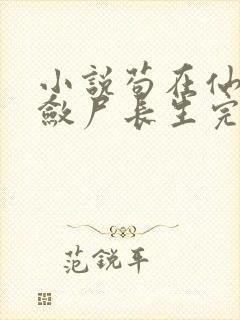 小說苟在仙
斂尸長生完
范銳平